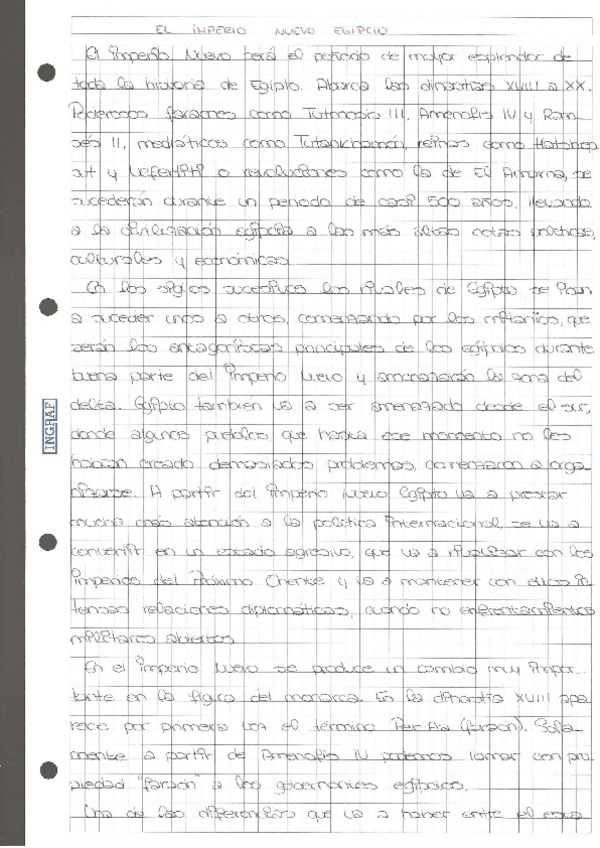 EL IMPERIO NUEVO EGIPCIO
El Imperio Nuevo será el periodo de mayor esplendor de
toda la historia de Egipto. Abarca las dinastías XVIII a XX.
Poderosos faraones como Tutmosis III, Amenofis IV y Ram-
sés II, mediáticos como Tutankhamón, reinas como Hatshep
sut y Nefertiti o revoluciones como la de El Amarna, se
sucederán durante un periodo de casi 500 años, llevando
a la civilización egipcia a las más altas cotas políticas,
culturales y económicas
En los siglos sucesivos los rivales de Egipto se van
a suceder unos a otros, comenzando por los mitannios, que
serán los antagonistas principales de los egipcios durante
buena parte del Imperio Nuevo y amenazarán la zona del
delta. Egipto tambien va a ser amenazado desde el sur,
donde algunos pueblos que hasta ese momento no les
habían creado demasiados problemas, comenzaron a orga
nizarse. A partir del Imperio Nuevo Egipto va a prestar
mucha más atención a la política internacional, se va a
convertir en un estado agresivo, que va a rivalizar con los
Imperios del Próximo Oriente y va a mantener con ellos in
tensas relaciones diplomáticas, cuando no enfrentamientos
militares abiertos
En el Imperio Nuevo se produce un cambio muy impor-
tante en la figura del monarca. En la dinastía XVIII apa
rece por primera vez el término Per-Aa (faraón). Sola-
mente a partir de Amenofis IV podemos llamar con pro
piedad "faraón" a los gobernantes egipcios.
Una de las diferencias que va a haber entre el
INGRAF